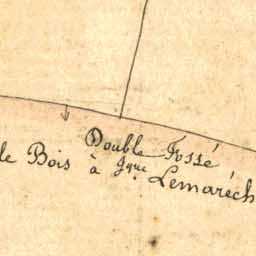 Double Fossé
le Bois à Jque. Lemaréch